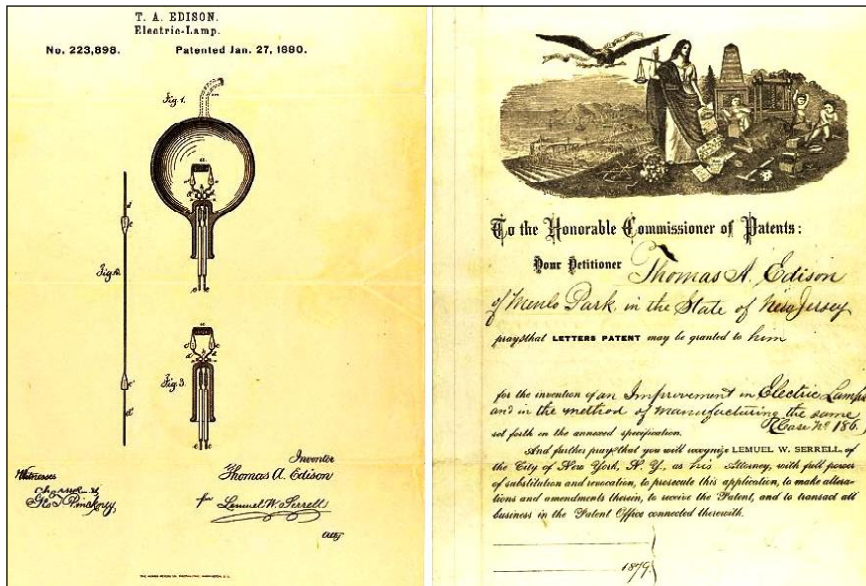 T. A. EDISON.
Electric-Lamp.
No. 223,898. Patented Jan. 27, 1880.
Fig. 1.
Fig. 2.
Fig. 3.
Witnesses
Inventor
Thomas A. Edison
for Lemuel W. Serrell
Atty
To the Honorable Commissioner of Patents:
Your Petitioner Thomas A. Edison
of Menlo Park, in the State of New Jersey
prays that LETTERS PATENT may be granted to him
for the invention of an Improvement in Electric Lamps
and in the method of manufacturing the same
(Case No 186.)
set forth in the annexed specification.
And further prays that you will recognize LEMUEL W. SERRELL, of
the City of New York, N. Y., as his Attorney, with full power
of substitution and revocation, to prosecute this application, to make altera-
tions and amendments therein, to receive the Patent, and to transact all
business in the Patent Office connected therewith.
1879.